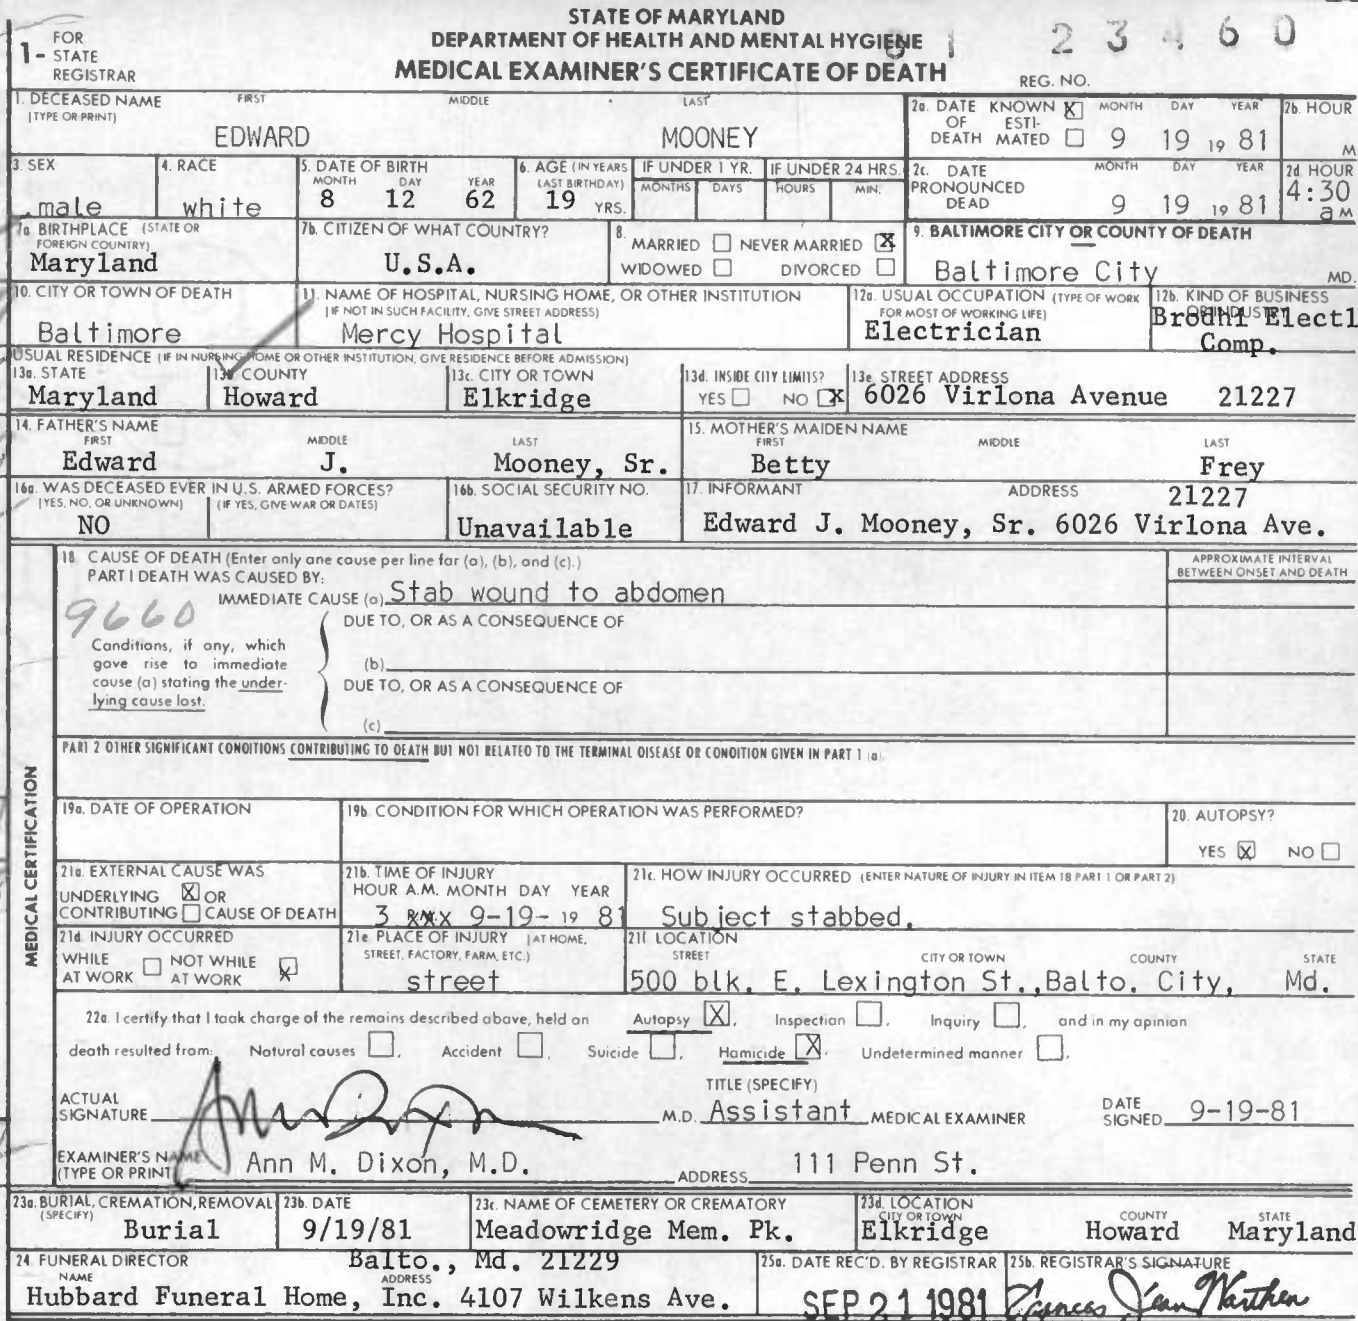 STATE OF MARYLAND
DEPARTMENT OF HEALTH AND MENTAL HYGIENE
MEDICAL EXAMINER'S CERTIFICATE OF DEATH
1- FOR STATE REGISTRAR
REG. NO. 81 23460
1. DECEASED NAME (TYPE OR PRINT) FIRST MIDDLE LAST
EDWARD MOONEY
2a. DATE OF DEATH KNOWN X ESTIMATED MONTH DAY YEAR
9 19 19 81
2b. HOUR M
3. SEX
male
4. RACE
white
5. DATE OF BIRTH MONTH DAY YEAR
8 12 62
6. AGE (IN YEARS LAST BIRTHDAY)
19 YRS.
IF UNDER 1 YR. MONTHS DAYS
IF UNDER 24 HRS. HOURS MIN.
2c. DATE PRONOUNCED DEAD MONTH DAY YEAR
9 19 19 81
2d HOUR
4:30 a M
7a. BIRTHPLACE (STATE OR FOREIGN COUNTRY)
Maryland
7b. CITIZEN OF WHAT COUNTRY?
U.S.A.
8. MARRIED NEVER MARRIED X
WIDOWED DIVORCED
9. BALTIMORE CITY OR COUNTY OF DEATH
Baltimore City MD.
10. CITY OR TOWN OF DEATH
Baltimore
11. NAME OF HOSPITAL, NURSING HOME, OR OTHER INSTITUTION
(IF NOT IN SUCH FACILITY, GIVE STREET ADDRESS)
Mercy Hospital
12a. USUAL OCCUPATION (TYPE OF WORK FOR MOST OF WORKING LIFE)
Electrician
12b. KIND OF BUSINESS OR INDUSTRY
Brodhi Electl Comp.
USUAL RESIDENCE (IF IN NURSING HOME OR OTHER INSTITUTION, GIVE RESIDENCE BEFORE ADMISSION)
13a. STATE
Maryland
13b COUNTY
Howard
13c. CITY OR TOWN
Elkridge
13d. INSIDE CITY LIMITS?
YES NO X
13e. STREET ADDRESS
6026 Virlona Avenue 21227
14. FATHER'S NAME
FIRST MIDDLE LAST
Edward J. Mooney, Sr.
15. MOTHER'S MAIDEN NAME
FIRST MIDDLE LAST
Betty Frey
16a. WAS DECEASED EVER IN U.S. ARMED FORCES?
(YES, NO, OR UNKNOWN) (IF YES, GIVE WAR OR DATES)
NO
16b. SOCIAL SECURITY NO.
Unavailable
17. INFORMANT ADDRESS
21227
Edward J. Mooney, Sr. 6026 Virlona Ave.
MEDICAL CERTIFICATION
18. CAUSE OF DEATH (Enter only one cause per line for (a), (b), and (c).)
APPROXIMATE INTERVAL BETWEEN ONSET AND DEATH
PART I DEATH WAS CAUSED BY:
IMMEDIATE CAUSE (a) Stab wound to abdomen
9660
DUE TO, OR AS A CONSEQUENCE OF
Conditions, if any, which gave rise to immediate cause (a) stating the underlying cause last.
(b)
DUE TO, OR AS A CONSEQUENCE OF
(c)
PART 2 OTHER SIGNIFICANT CONDITIONS CONTRIBUTING TO DEATH BUT NOT RELATED TO THE TERMINAL DISEASE OR CONDITION GIVEN IN PART 1 (a).
19a. DATE OF OPERATION
19b CONDITION FOR WHICH OPERATION WAS PERFORMED?
20. AUTOPSY?
YES X NO
21a. EXTERNAL CAUSE WAS
UNDERLYING X OR
CONTRIBUTING CAUSE OF DEATH
21b. TIME OF INJURY
HOUR A.M. MONTH DAY YEAR
3 9-19- 19 81
21c. HOW INJURY OCCURRED (ENTER NATURE OF INJURY IN ITEM 18 PART 1 OR PART 2)
Subject stabbed.
21d INJURY OCCURRED
WHILE AT WORK NOT WHILE AT WORK X
21e PLACE OF INJURY (AT HOME, STREET, FACTORY, FARM, ETC.)
street
21f LOCATION
STREET CITY OR TOWN COUNTY STATE
500 blk. E. Lexington St.,Balto. City, Md.
22a. I certify that I took charge of the remains described above, held an Autopsy X, Inspection , Inquiry , and in my opinion
death resulted from: Natural causes , Accident , Suicide , Homicide X, Undetermined manner .
ACTUAL SIGNATURE Ann Dixon
M.D. TITLE (SPECIFY) Assistant MEDICAL EXAMINER
DATE SIGNED 9-19-81
EXAMINER'S NAME (TYPE OR PRINT) Ann M. Dixon, M.D.
ADDRESS 111 Penn St.
23a. BURIAL, CREMATION, REMOVAL (SPECIFY)
Burial
23b. DATE
9/19/81
23c. NAME OF CEMETERY OR CREMATORY
Meadowridge Mem. Pk.
23d. LOCATION
CITY OR TOWN COUNTY STATE
Elkridge Howard Maryland
24. FUNERAL DIRECTOR
NAME ADDRESS
Balto., Md. 21229
Hubbard Funeral Home, Inc. 4107 Wilkens Ave.
25a. DATE REC'D. BY REGISTRAR
SEP 21 1981
25b. REGISTRAR'S SIGNATURE
Frances Jean Warthen